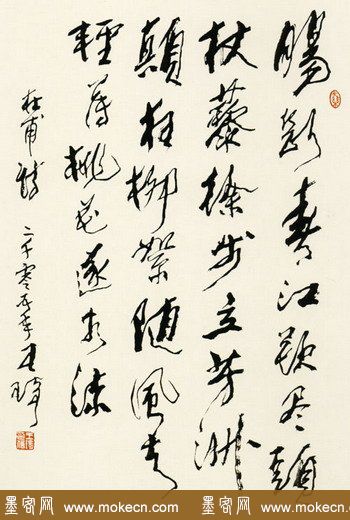 腸斷春江欲尽頭
杖藜徐步立芳洲
顛狂柳絮随風去
輕薄桃花逐水流
杜甫詩
二千零五年
墨客网 www.mokecn.com 墨客网 www.mokecn.com